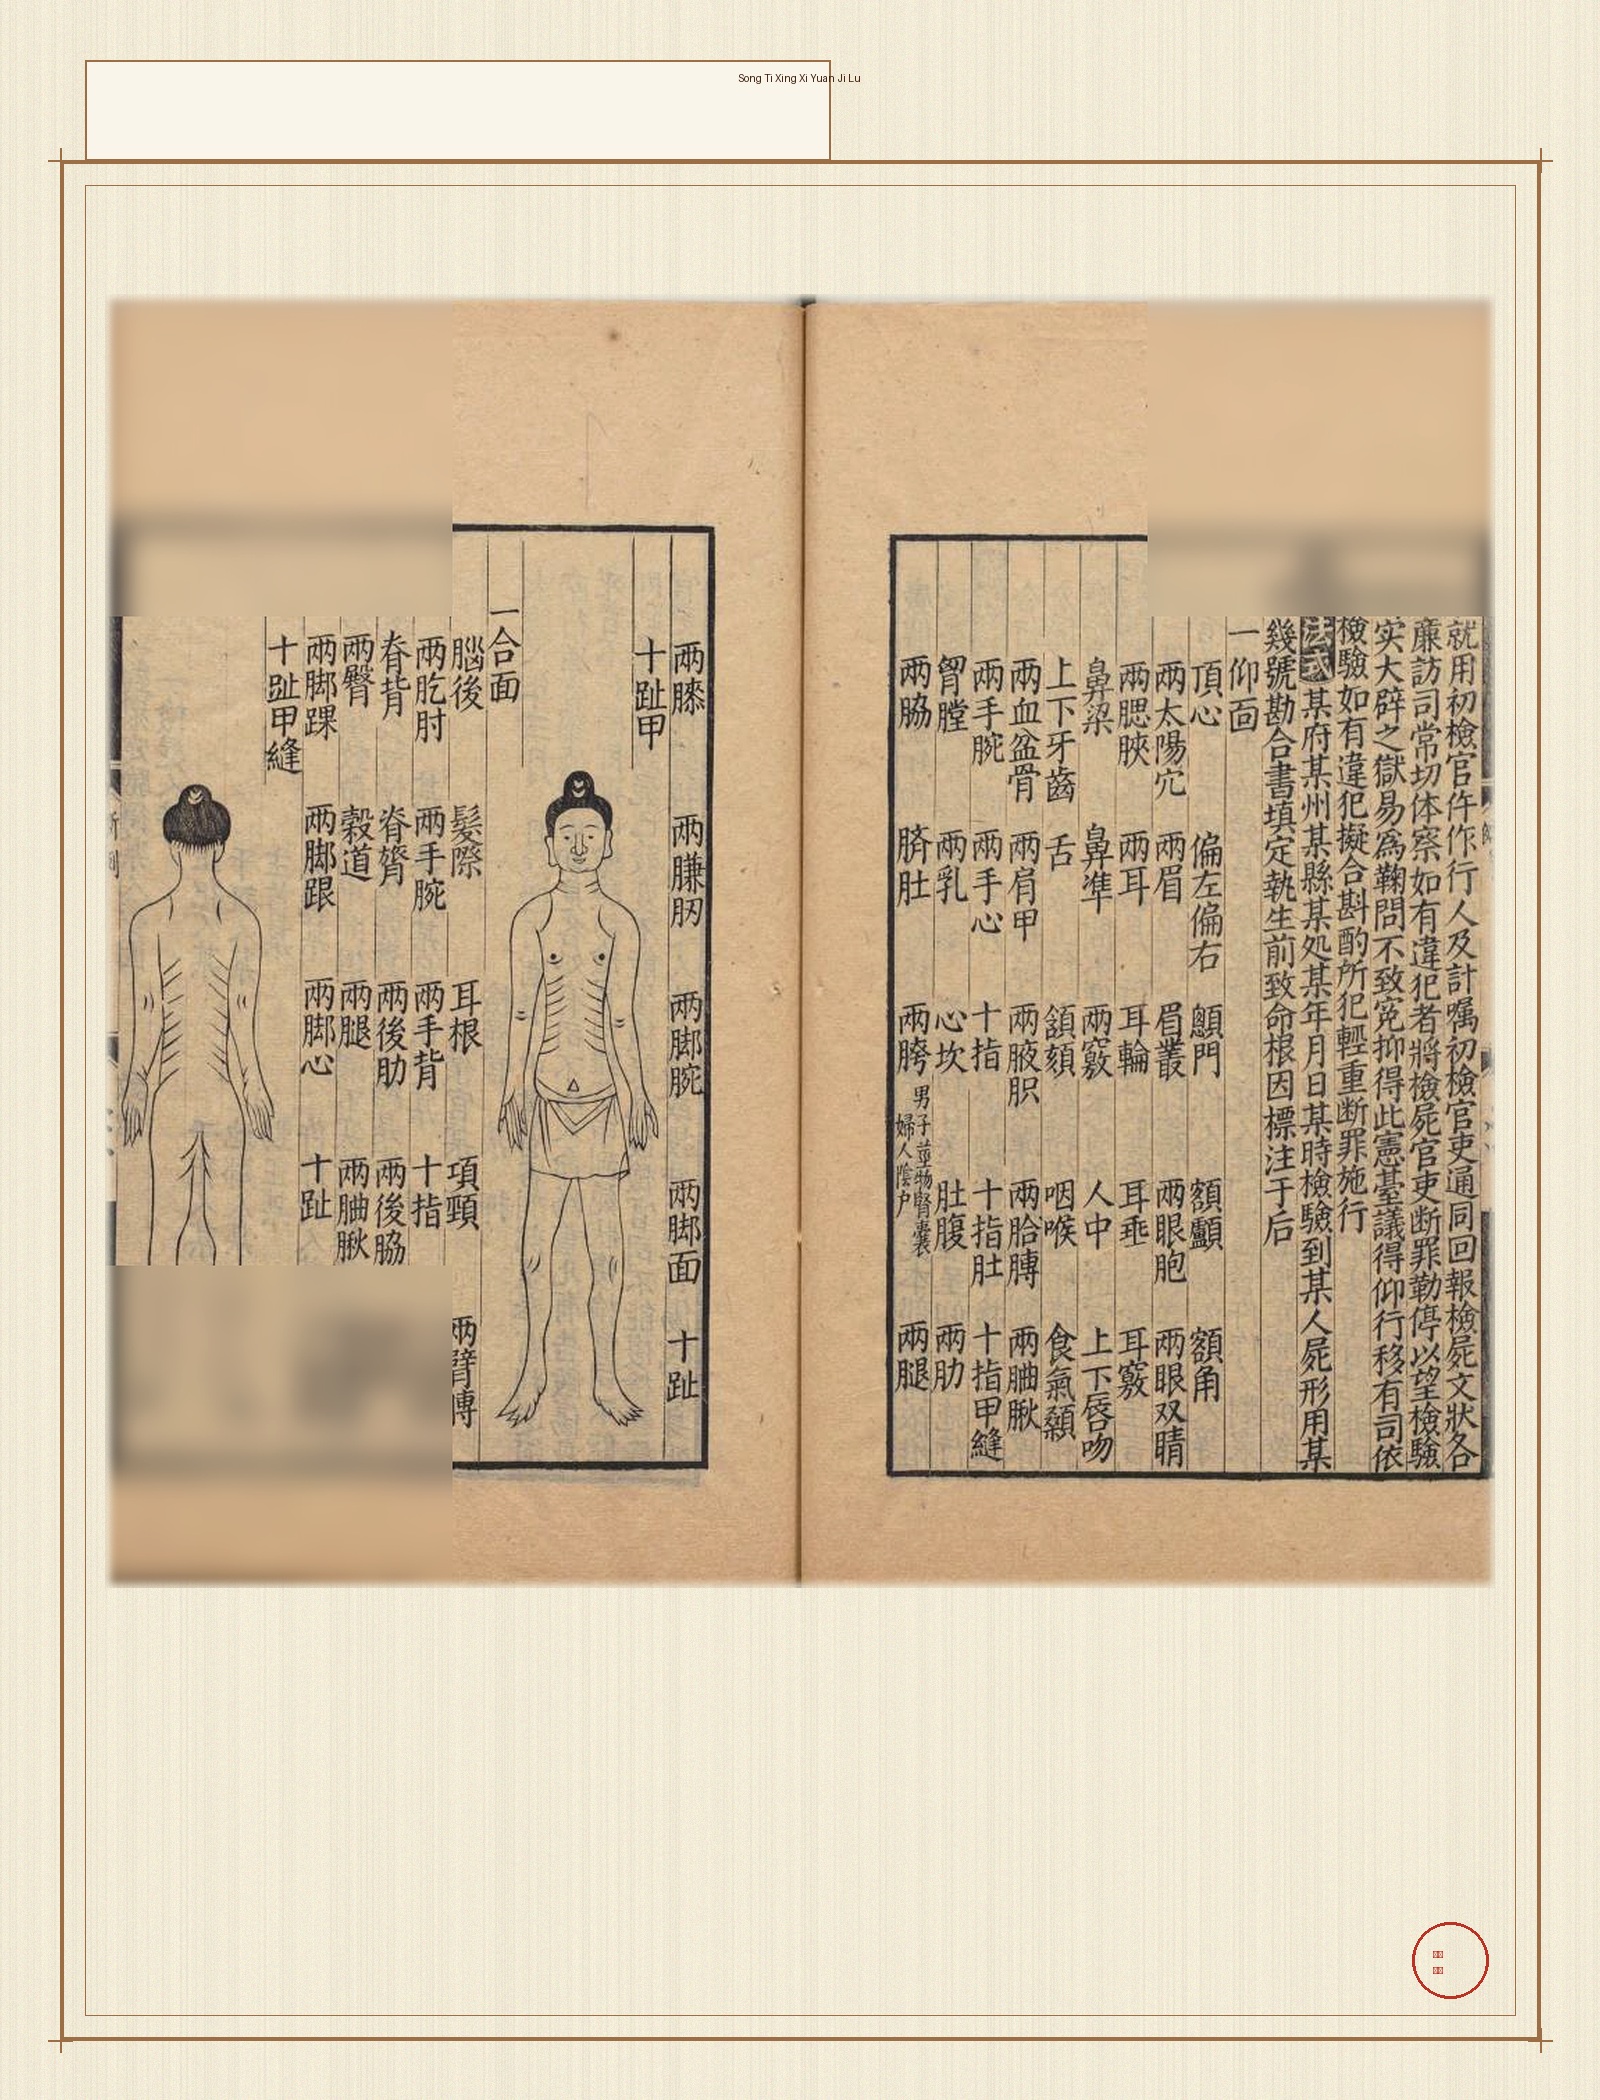 Song Ti Xing Xi Yuan Ji Lu
就用初檢官仵作行人及計囑初檢官吏通同回報檢屍文狀各
廉訪司常切体察如有違犯者將檢屍官吏断罪勒停以望檢驗
实大辟之獄易爲鞠問不致寃抑得此憲臺議得仰行移有司依
檢驗如有違犯擬合斟酌所犯輕重断罪施行
法式某府某州某縣某処某年月日某時檢驗到某人屍形用某
幾號勘合書填定執生前致命根因標注于后
一仰面
頂心 偏左偏右 顖門 額顱 額角
兩太陽穴 兩眉 眉叢 兩眼胞 兩眼双睛
兩腮脥 兩耳 耳輪 耳垂 耳竅
鼻梁 鼻準 兩竅 人中 上下唇吻
上下牙齒 舌 頷頦 咽喉 食氣顙
兩血盆骨 兩肩甲 兩腋胑 兩肐膊 兩䏔脉
兩手腕 兩手心 十指 十指肚 十指甲縫
胷膛 兩乳 心坎 肚腹 兩肋
兩脇 臍肚 兩胯 男子莖物腎囊 婦人陰户 兩腿
兩膝 兩臁肕 兩脚腕 兩脚面 十趾
十趾甲
一合面
腦後 髮際 耳根 項頸 兩臂膊
兩肐肘 兩手腕 兩手背 十指
脊背 脊膂 兩後肋 兩後脇
兩臀 穀道 兩腿 兩䏔䐐
兩脚踝 兩脚跟 兩脚心 十趾
十趾甲縫